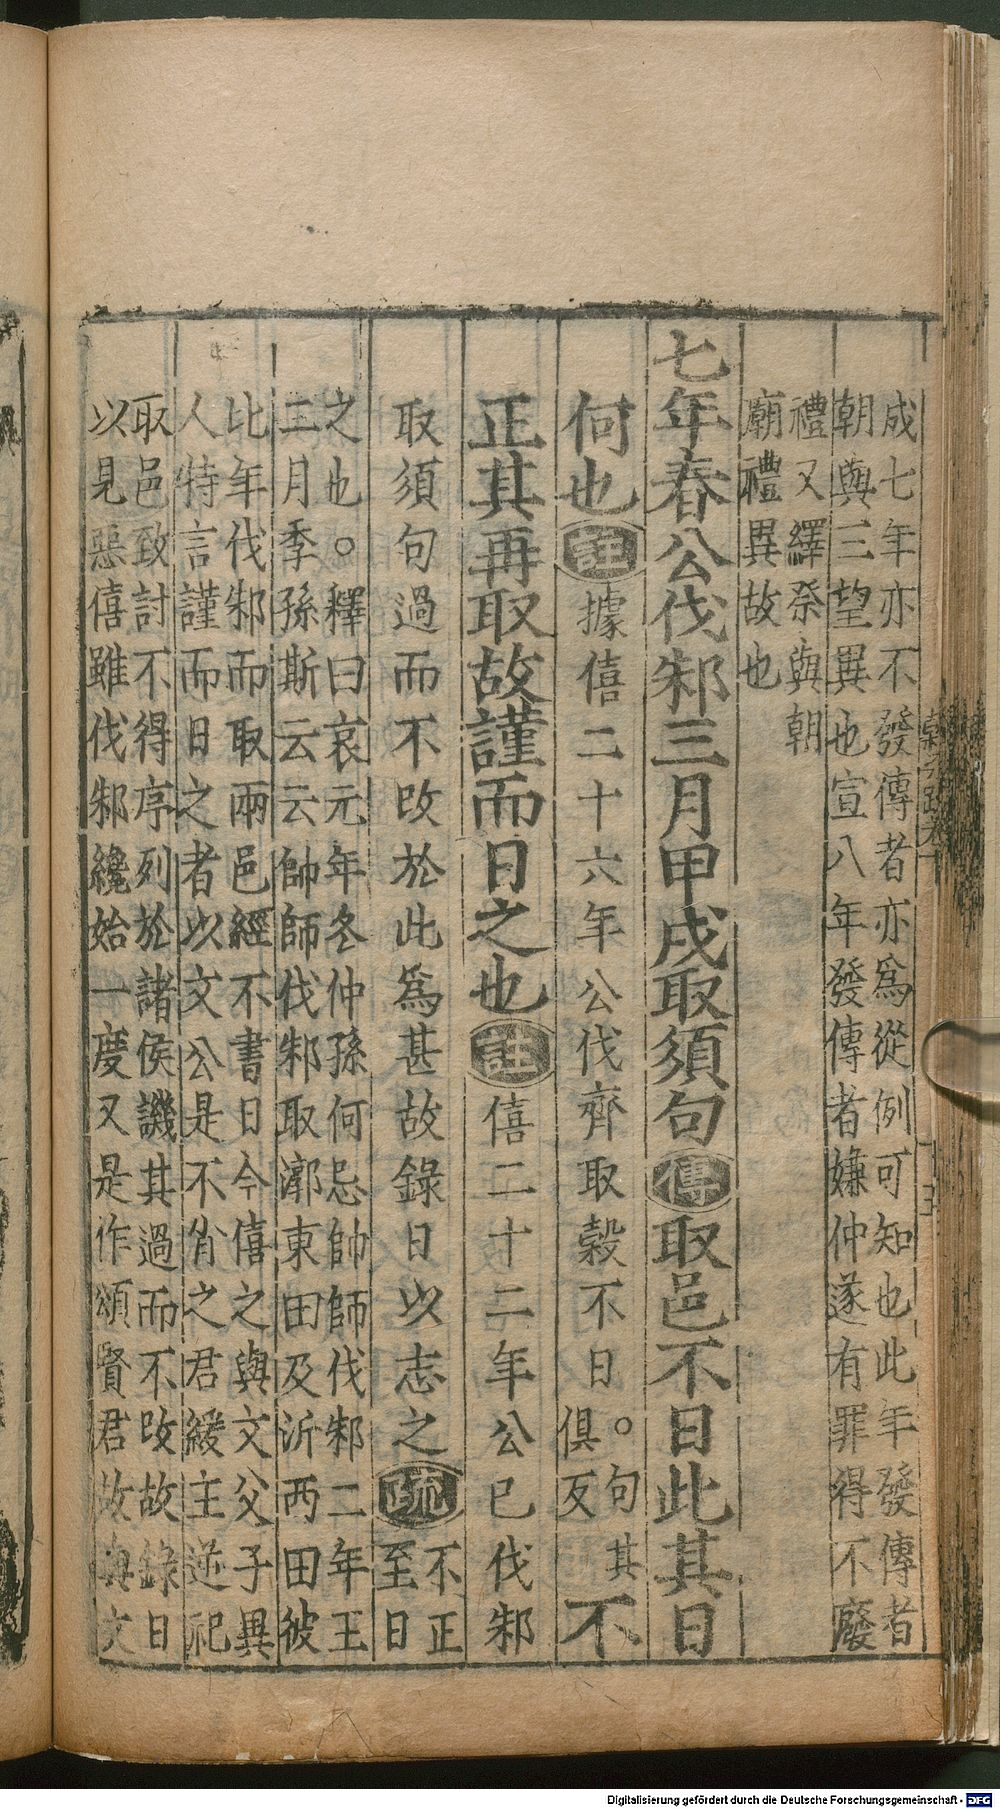 成七年亦不發傳者亦爲從例可知也此年發傳者
朝與三望異也宣八年發傳者嫌仲遂有罪得不廢
禮又繹祭與朝
廟禮異故也
七年春公伐邾三月甲戌取須句傳取邑不日此其日
何也註據僖二十六年公伐齊取穀不日。句其俱反不
正其再取故謹而日之也註僖二十二年公已伐邾
取須句過而不改於此爲甚故錄日以志之疏不正至日
之也。釋曰哀元年冬仲孫何忌帥師伐邾二年王
二月季孫斯云云帥師伐邾取漷東田及沂西田彼
比年伐邾而取兩邑經不書日今僖之與文父子異
人特言謹而日之者以文公是不肖之君緩主逆祀
取邑致討不得序列於諸侯譏其過而不改故錄日
以見惡僖雖伐邾纔始一度又是作頌賢君故與文
Digitalisierung gefördert durch die Deutsche Forschungsgemeinschaft - DFG